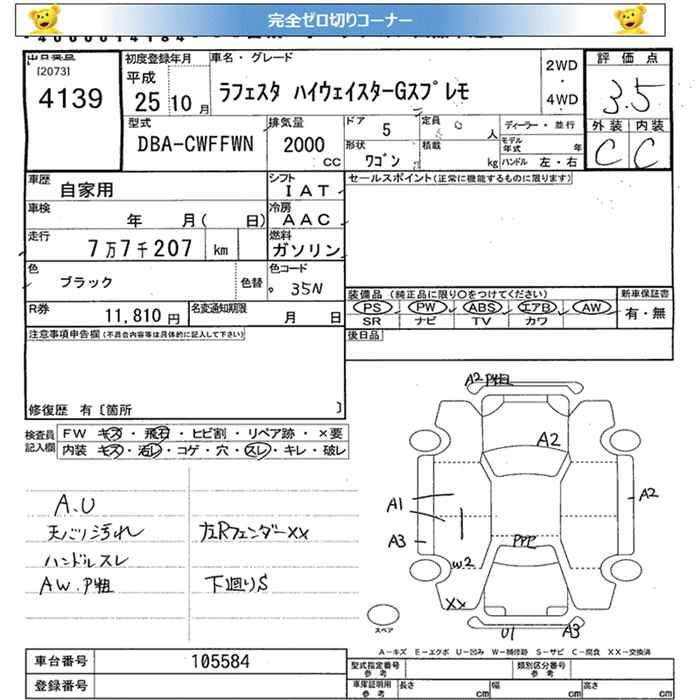 完全ゼロ切りコーナー
出品番号
[2073]
4139
初度登録年月
平成
25年10月
車名・グレード
ラフェスタ ハイウェイスターGスプレモ
2WD
・
4WD
評価点
3.5
外装 内装
C C
型式
DBA-CWFFWN
排気量
2000
CC
ドア 5
形状 ワゴン
定員 人
積載 kg
ディーラー・並行
モデル年式 年
ハンドル 左・右
車歴 自家用
シフト IAT
車検 年 月( 日)
冷房 AAC
走行 7万7千207 km
燃料 ガソリン
色 ブラック
色替
色コード 35N
R券 11,810円
名変通知期限 月 日
セールスポイント(正常に機能するものに限ります)
装備品(純正品に限り○をつけてください)
PS PW ABS エアB AW
SR ナビ TV カワ
新車保証書
有・無
後日品
注意事項申告欄(不具合内容等は具体的に記入して下さい)
修復歴 有〔箇所 〕
検査員記入欄
FW キズ・飛石・ヒビ割・リペア跡・×要
内装 キズ・汚レ・コゲ・穴・スレ・キレ・破レ
A.U
天バリ汚れ
ハンドルスレ
AW.P粗
左Rフェンダーxx
下廻りS
A2 P粗
A2
A1
A2
A3
PPP
W2
XX
U1 A3
スペア
A-キズ E-エクボ U-凹み W-補修跡 S-サビ C-腐食 XX-交換済
車台番号 105584
登録番号
型式指定番号
参考
類別区分番号
参考
車庫証明用
参考
長さ cm
幅 cm
高さ cm